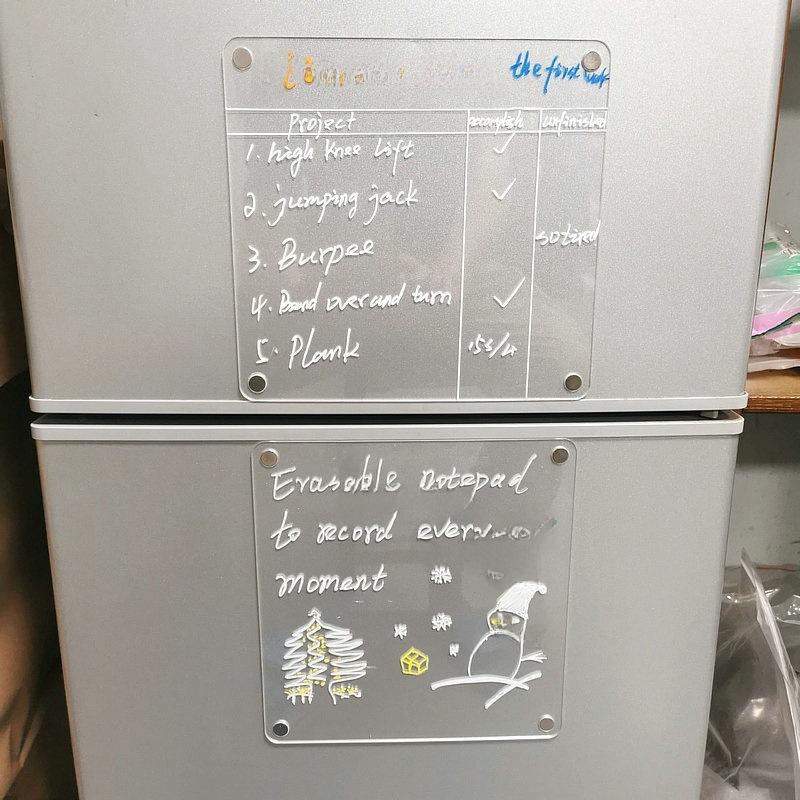 the first
Project accomplish unfinished
1. high knee lift ✓
2. jumping jack ✓
3. Burpee so tired
4. Bend over and turn ✓
5. Plank
Erasable notepad
to record
moment